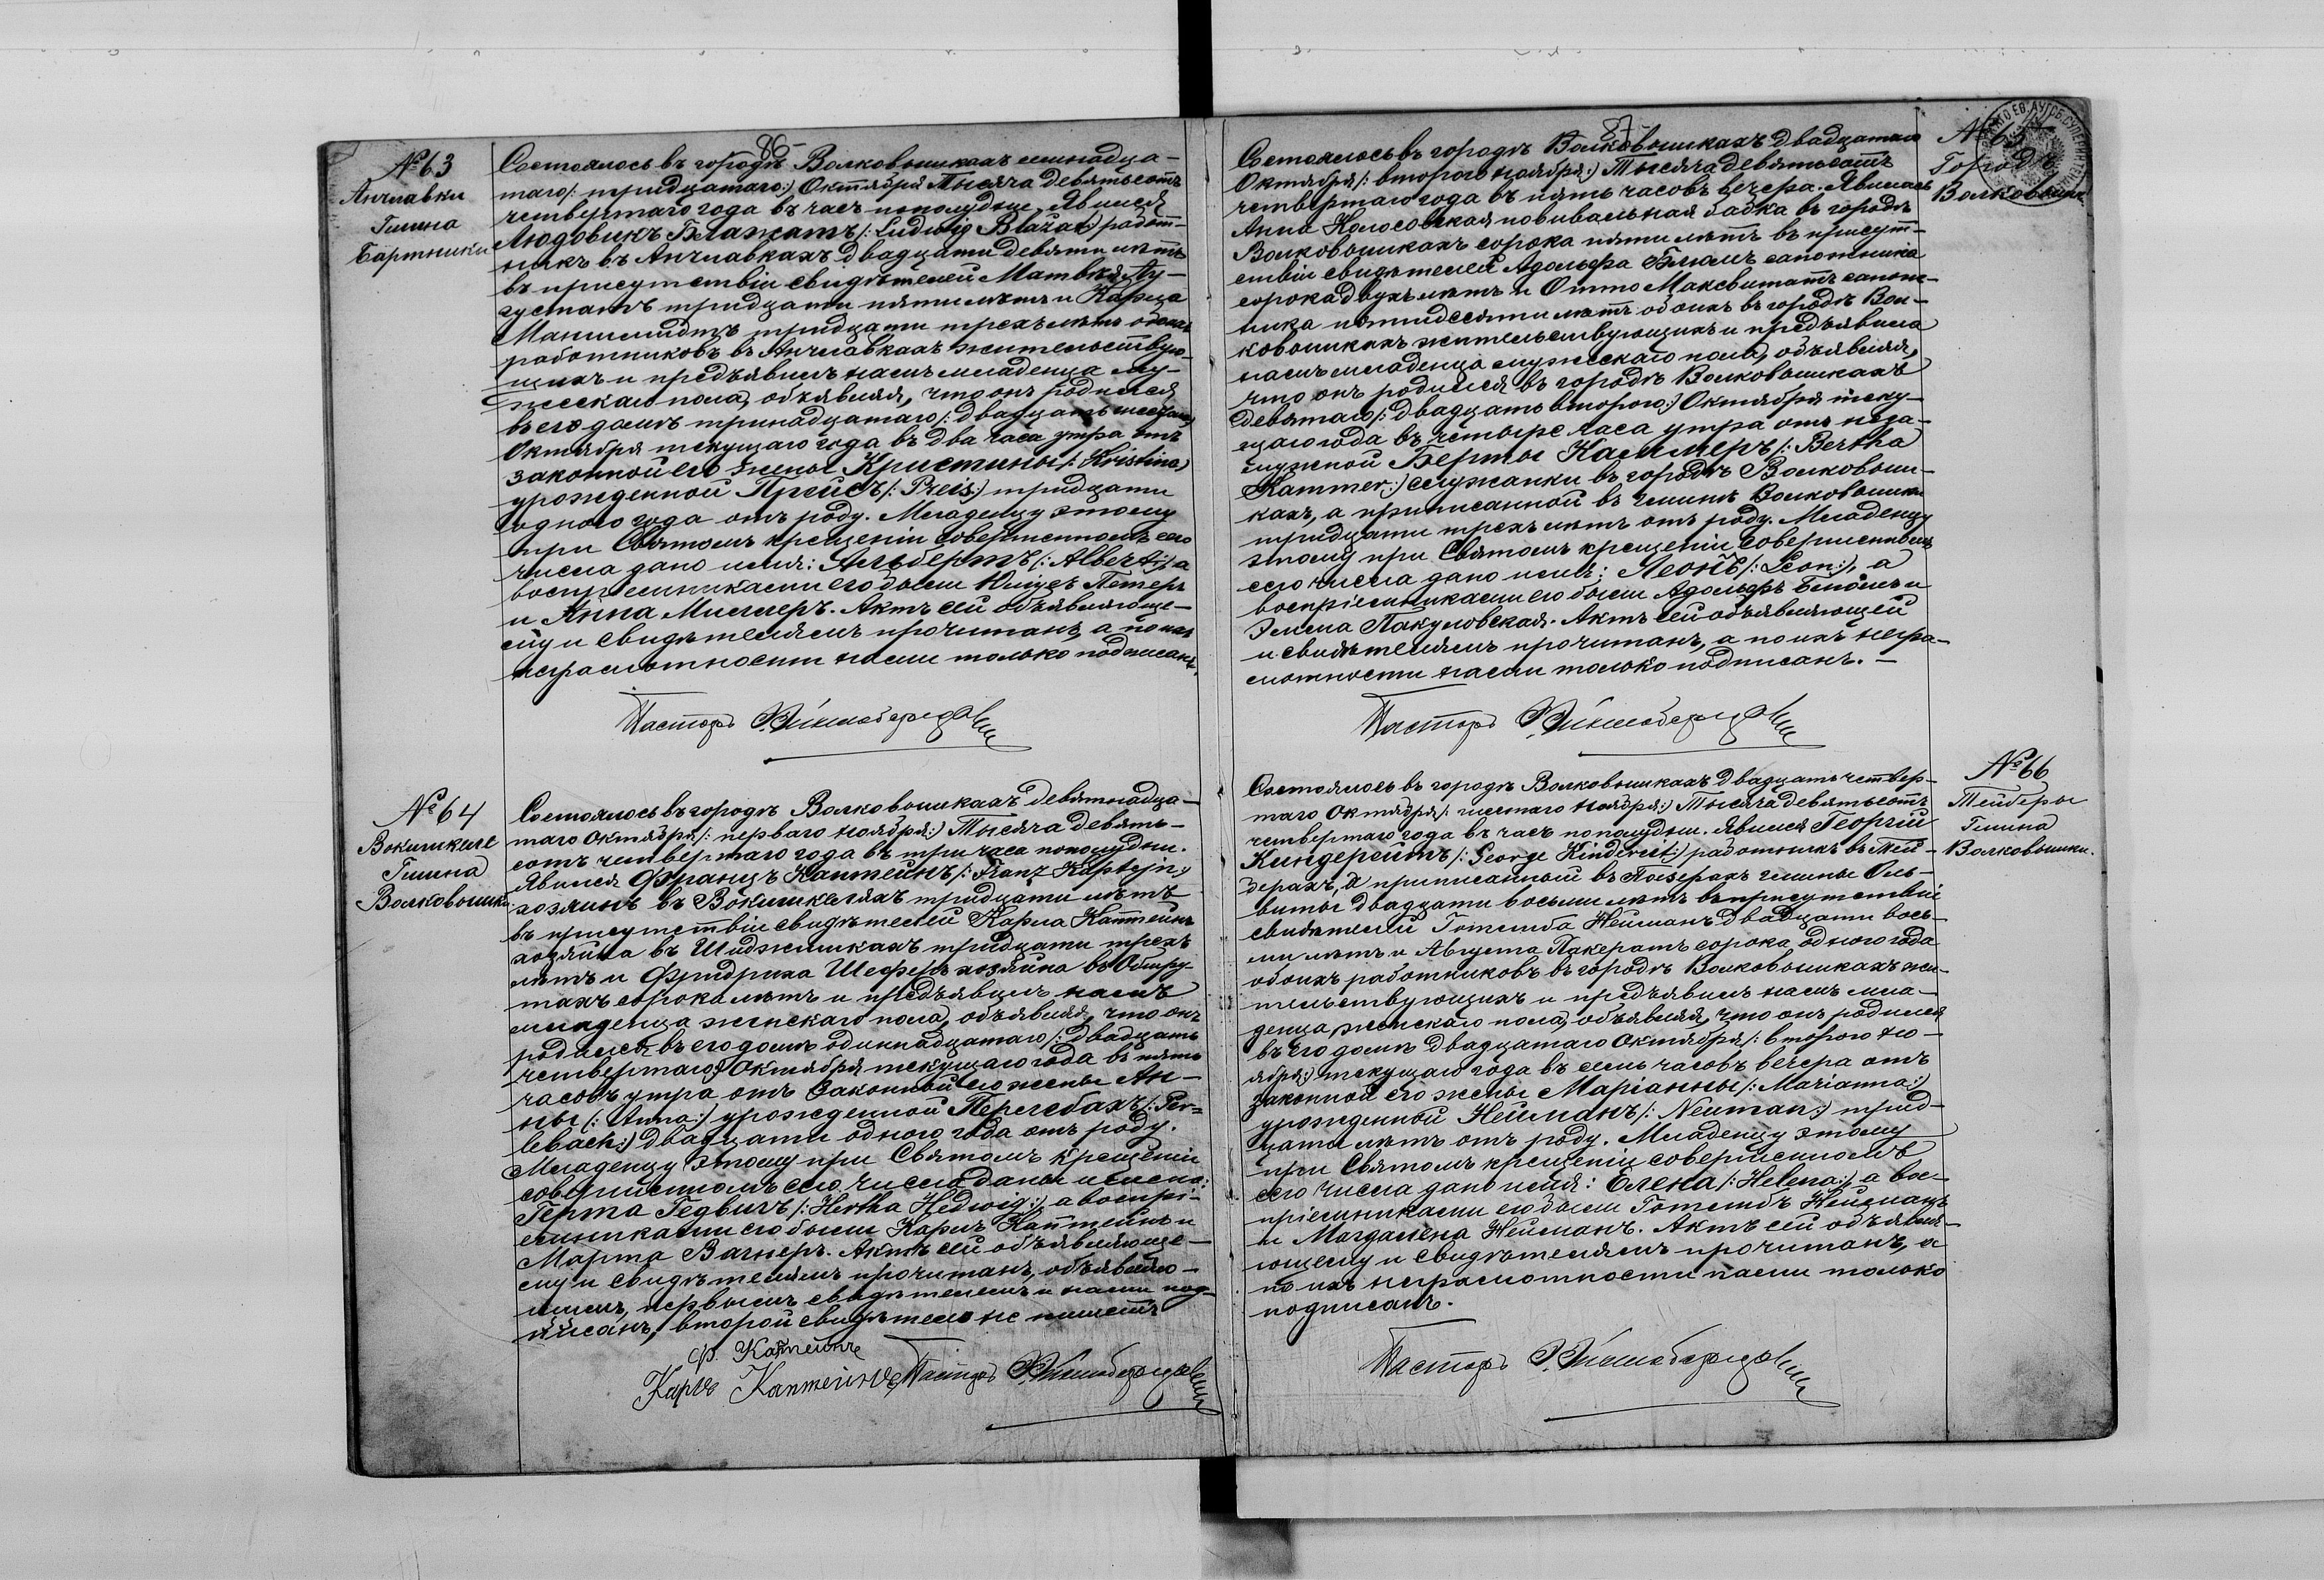 86-
№ 63
Анчлавки
Гмина
Бартники
Состоялось въ городѣ Волковышкахъ семнадца-
таго /: тридцатаго:/ Октября Тысяча девятьсотъ
четвертаго года въ часъ пополудни. Явился
Людовикъ Блажатъ /: Ludwig Blažat:/ работ-
никъ въ Анчлавкахъ двадцати девяти лѣтъ
въ присутствіи свидѣтелей Матвѣя Ав-
густатъ тридцати пяти лѣтъ и Карла
тридцати трехъ лѣтъ обоихъ
работниковъ въ Анчлавкахъ жительствую-
щихъ и предъявилъ намъ младенца му-
жескаго пола, объявляя, что онъ родился
въ его домѣ тринадцатаго /: двадцать шестаго:/
Октября текущаго года въ два часа утра отъ
законной его жены Кристины /: Kristina:/
урожденной Прейсъ /: Preis:/ тридцати
одного года отъ роду. Младенцу этому
при Святомъ крещеніи совершенномъ сего
числа дано имя: Альбертъ /: Albert:/, а
воспріемниками его были Петеръ
и Анна Миллеръ. Актъ сей объявляюще-
му и свидѣтелямъ прочитанъ, а по ихъ
неграмотности нами только подписанъ.
Пасторъ
№ 64
Вокишкеле
Гмина
Волковышки.
Состоялось въ городѣ Волковышкахъ девятнадца-
таго Октября /: перваго Ноября:/ Тысяча девять-
сотъ четвертаго года въ три часа пополудни.
Явился Францъ Каптейнъ /: Franz Kaptejn:/
хозяинъ въ Вокишкеляхъ тридцати лѣтъ
въ присутствіи свидѣтелей Карла Каптейнъ
хозяина въ тридцати трехъ
лѣтъ и Фридриха Шеферъ хозяина въ Обшру-
тахъ сорока лѣтъ и предъявилъ намъ
младенца женскаго пола, объявляя, что онъ
родился въ его домѣ одиннадцатаго /: двадцать
четвертаго:/ Октября текущаго года въ пять
часовъ утра отъ законной его жены Ан-
ны /: Anna:/ урожденной Перлебахъ /: Per=
lebach:/ двадцати одного года отъ роду.
Младенцу этому при Святомъ крещеніи
совершенномъ сего числа даны имена:
Герта Гедвигъ /: Hertha Hedwig:/, а воспрі-
емниками его были Карлъ Каптейнъ и
Марта Вагнеръ. Актъ сей объявляюще-
му и свидѣтелямъ прочитанъ, объявляю-
щимъ, первымъ свидѣтелемъ и нами под-
писанъ, второй свидѣтель не пишетъ
Ф. Каптейнъ
Карлъ Каптейнъ Пасторъ
87-
№ 65
Городъ
Волковышки
Состоялось въ городѣ Волковышкахъ двадцатаго
Октября /: втораго Ноября:/ Тысяча девятьсотъ
четвертаго года въ пять часовъ вечера. Явилась
Анна Колосовская повивальная бабка въ городѣ
Волковышкахъ сорока пяти лѣтъ въ присут-
ствіи свидѣтелей Адольфа Блюмъ сапожника
сорока двухъ лѣтъ и Отто Максвитатъ сапож-
ника пятидесяти лѣтъ обоихъ въ городѣ Вол-
ковышкахъ жительствующихъ и предъявила
намъ младенца мужескаго пола, объявляя,
что онъ родился въ городѣ Волковышкахъ
девятаго /: двадцать втораго:/ Октября теку-
щаго года въ четыре часа утра отъ неза-
мужной Берты Каммеръ /: Bertha
Kammer:/ служанки въ городѣ Волковыш-
кахъ, а приписанной въ гминѣ Волковышки
тридцати трехъ лѣтъ отъ роду. Младенцу
этому при Святомъ крещеніи совершенномъ
сего числа дано имя: Леонъ /: Leon:/, а
воспріемниками его были Адольфъ Блюмъ и
Эмма Пакуловская. Актъ сей объявляющей
и свидѣтелямъ прочитанъ, а по ихъ негра-
мотности нами только подписанъ. -
Пасторъ
№ 66
Тейберы
Гмина
Волковышки.
Состоялось въ городѣ Волковышкахъ двадцать четвер-
таго Октября /: шестаго Ноября:/ Тысяча девятьсотъ
четвертаго года въ часъ пополудни. Явился Георгій
Киндерейтъ /: George Kindereit:/ работникъ въ Тей-
берахъ, а приписанный въ гмины Оль-
виты двадцати восьми лѣтъ въ присутствіи
свидѣтелей Готлиба Нейманъ двадцати вось-
ми лѣтъ и Августа Пакератъ сорока одного года
обоихъ работниковъ въ городѣ Волковышкахъ жи-
тельствующихъ и предъявилъ намъ мла-
денца женскаго пола, объявляя, что онъ родился
въ его домѣ двадцатаго Октября /: втораго Но-
ября:/ текущаго года въ семь часовъ вечера отъ
законной его жены Маріанны /: Marianna:/
урожденной Нейманъ /: Neuman:/ трид-
цати лѣтъ отъ роду. Младенцу этому
при Святомъ крещеніи совершенномъ
сего числа дано имя: Елена /: Helena:/, а вос-
пріемниками его были Готлибъ Нейманъ
и Магдалена Нейманъ. Актъ сей объявля-
ющему и свидѣтелямъ прочитанъ, а
по ихъ неграмотности нами только
подписанъ.
Пасторъ